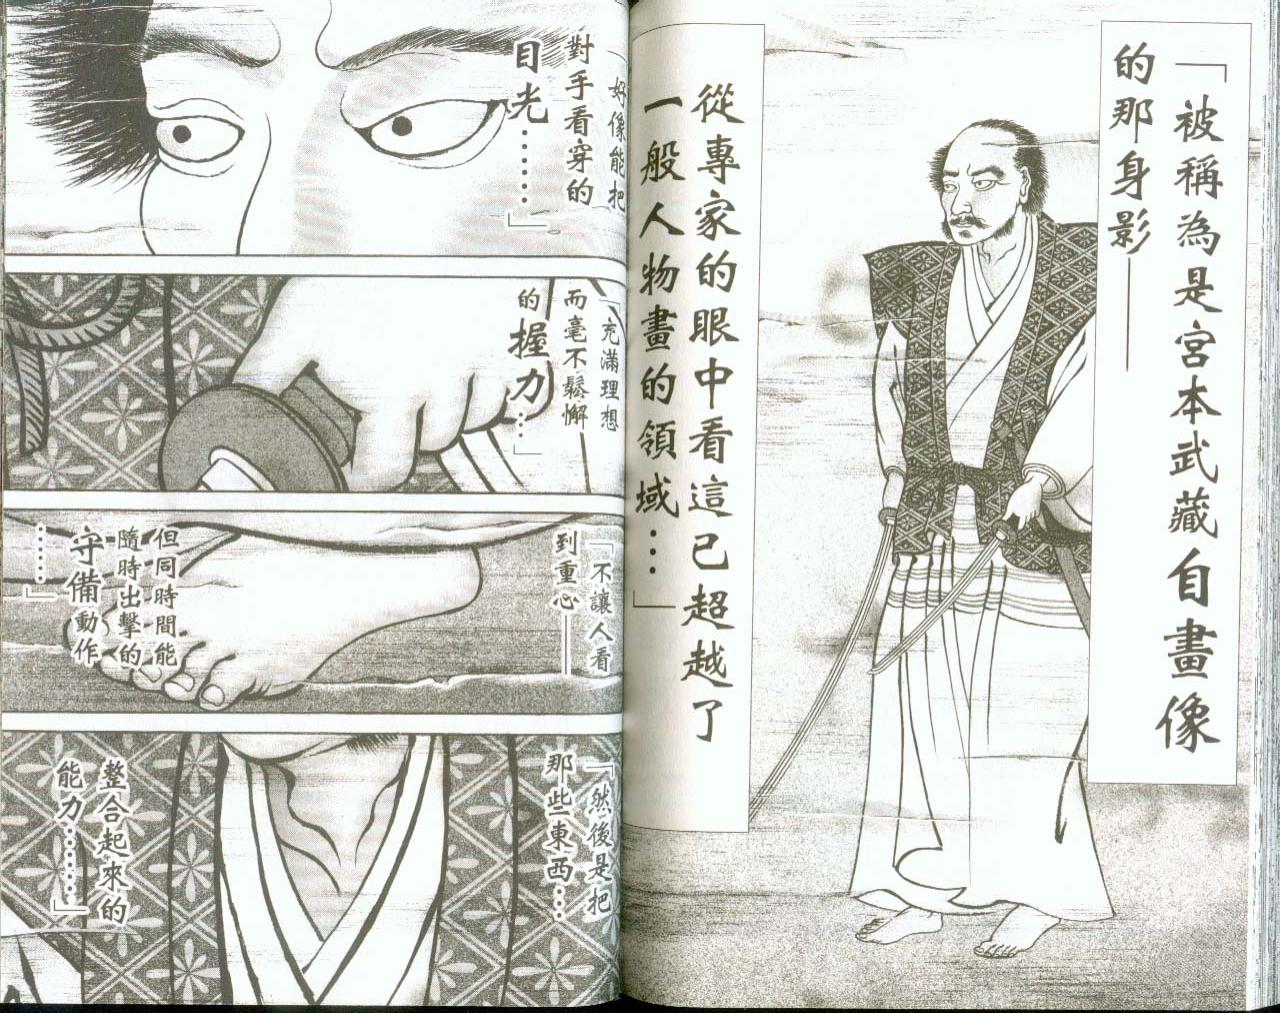 「被稱為是宮本武藏自畫像
的那身影——
從專家的眼中看這已超越了
一般人物畫的領域…」
「好像能把
對手看穿的
目光……」
「充滿理想
而毫不鬆懈
的握力…」
「不讓人看
到重心——
但同時間能
隨時出擊的
守備動作
……」
「然後是把
那些東西…
整合起來的
能力………」